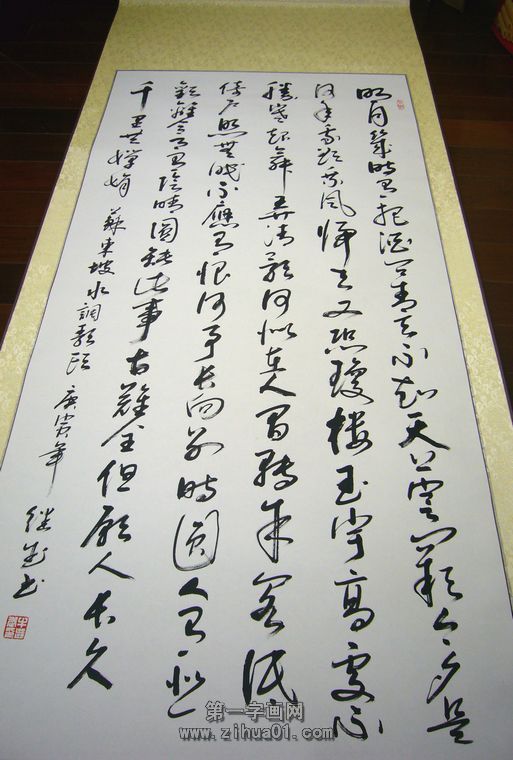 明月幾時有把酒问青天不知天上宫阙今夕是
何年我欲乘风归去又恐瓊樓玉宇高處不
勝寒起舞弄清影何似在人间转朱阁低
绮户照無眠不應有恨何事长向别時圆人有悲
歡離合月有陰晴圆缺此事古難全但願人长久
千里共嬋娟 蘇東坡水調歌頭 庚寅年
继 书
第一字画网
www.zihua01.com